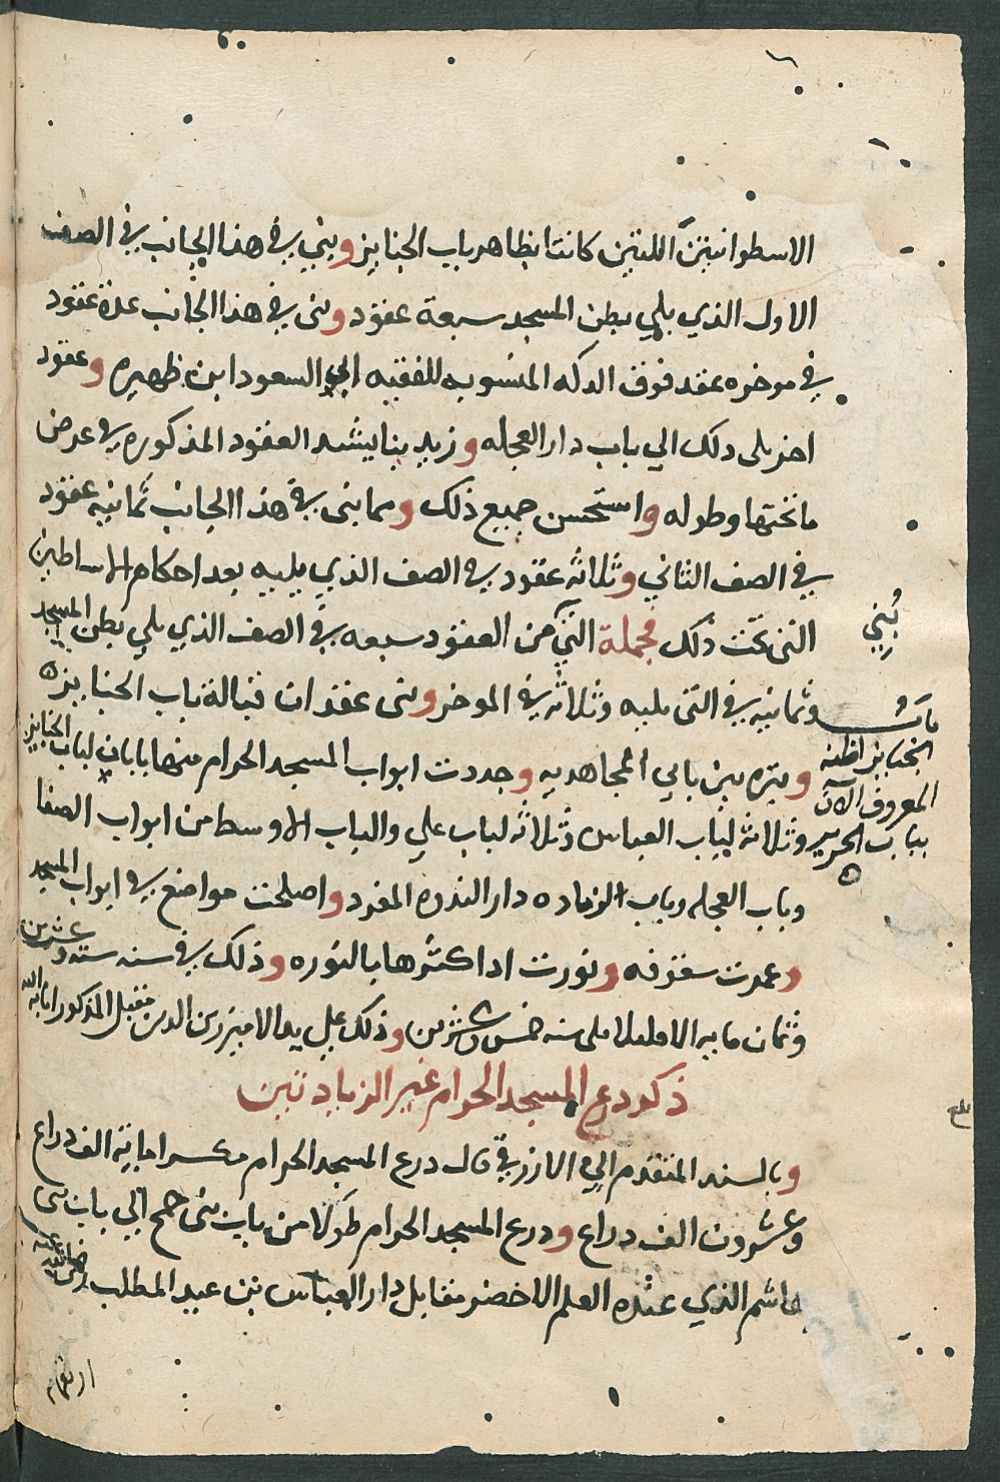 الاسطوانيتن اللتين كانتا بظاهر باب الجنايز وبني في هذا الجانب في الصف
الاول الذي يلي بطن المسجد سبعة عقود وبنى في هذا الجانب عدة عقود
في موخره عقد فوق الدكه المنسوبه للفقيه ابي السعود ابن ظهيره وعقود
اخر يلى ذلك الي باب دار العجله وزيد بنا يشد العقود المذكوره في عرض
ما تحتها وطوله واستحسن جميع ذلك ومما بنى في هذا الجانب ثمانيه عقود
في الصف الثاني وثلاثه عقود في الصف الذي يليه بعد احكام الاساطين
التى تحت ذلك فجملة التي من العقود سبعه في الصف الذي يلي بطن المسجد
بُني
وثمانيه في التى يليه وثلاثه في الموخر وبنى عقدان قبالة باب الجنايز
باب
الجنايز اظنه
المعروف الآن
بباب الحرير
وبتره بين بابي المجاهديه وجددت ابواب المسجد الحرام منها بابان لباب الجنايز
وثلاثه لباب العباس وثلاثه لباب علي والباب الاوسط من ابواب الصفا
وباب العجله وباب الزياده دار الندوه المفرد واصلحت مواضع في ابواب المسجد
وعمرت سقوفه ونورت اذ اكثرها بالنوره وذلك في سنه سته وعشرين
وثمان مايه الا قليلا على سنه خمس وعشرين وذلك على يد الامير زين الدين مقبل المذكور اثابه الله
ذكر ذرع المسجد الحرام غير الزيادتين
وبالسند المتقدم الي الازرقي قال درع المسجد الحرام مكسرا ماية الف دراع
وعشرون الف دراع ودرع المسجد الحرام طولا من باب بنى جمح الي باب بنى
هاشم الذي عنده العلم الاخضر مقابل دار العباس بن عبد المطلب رضي الله عنه
بلغ